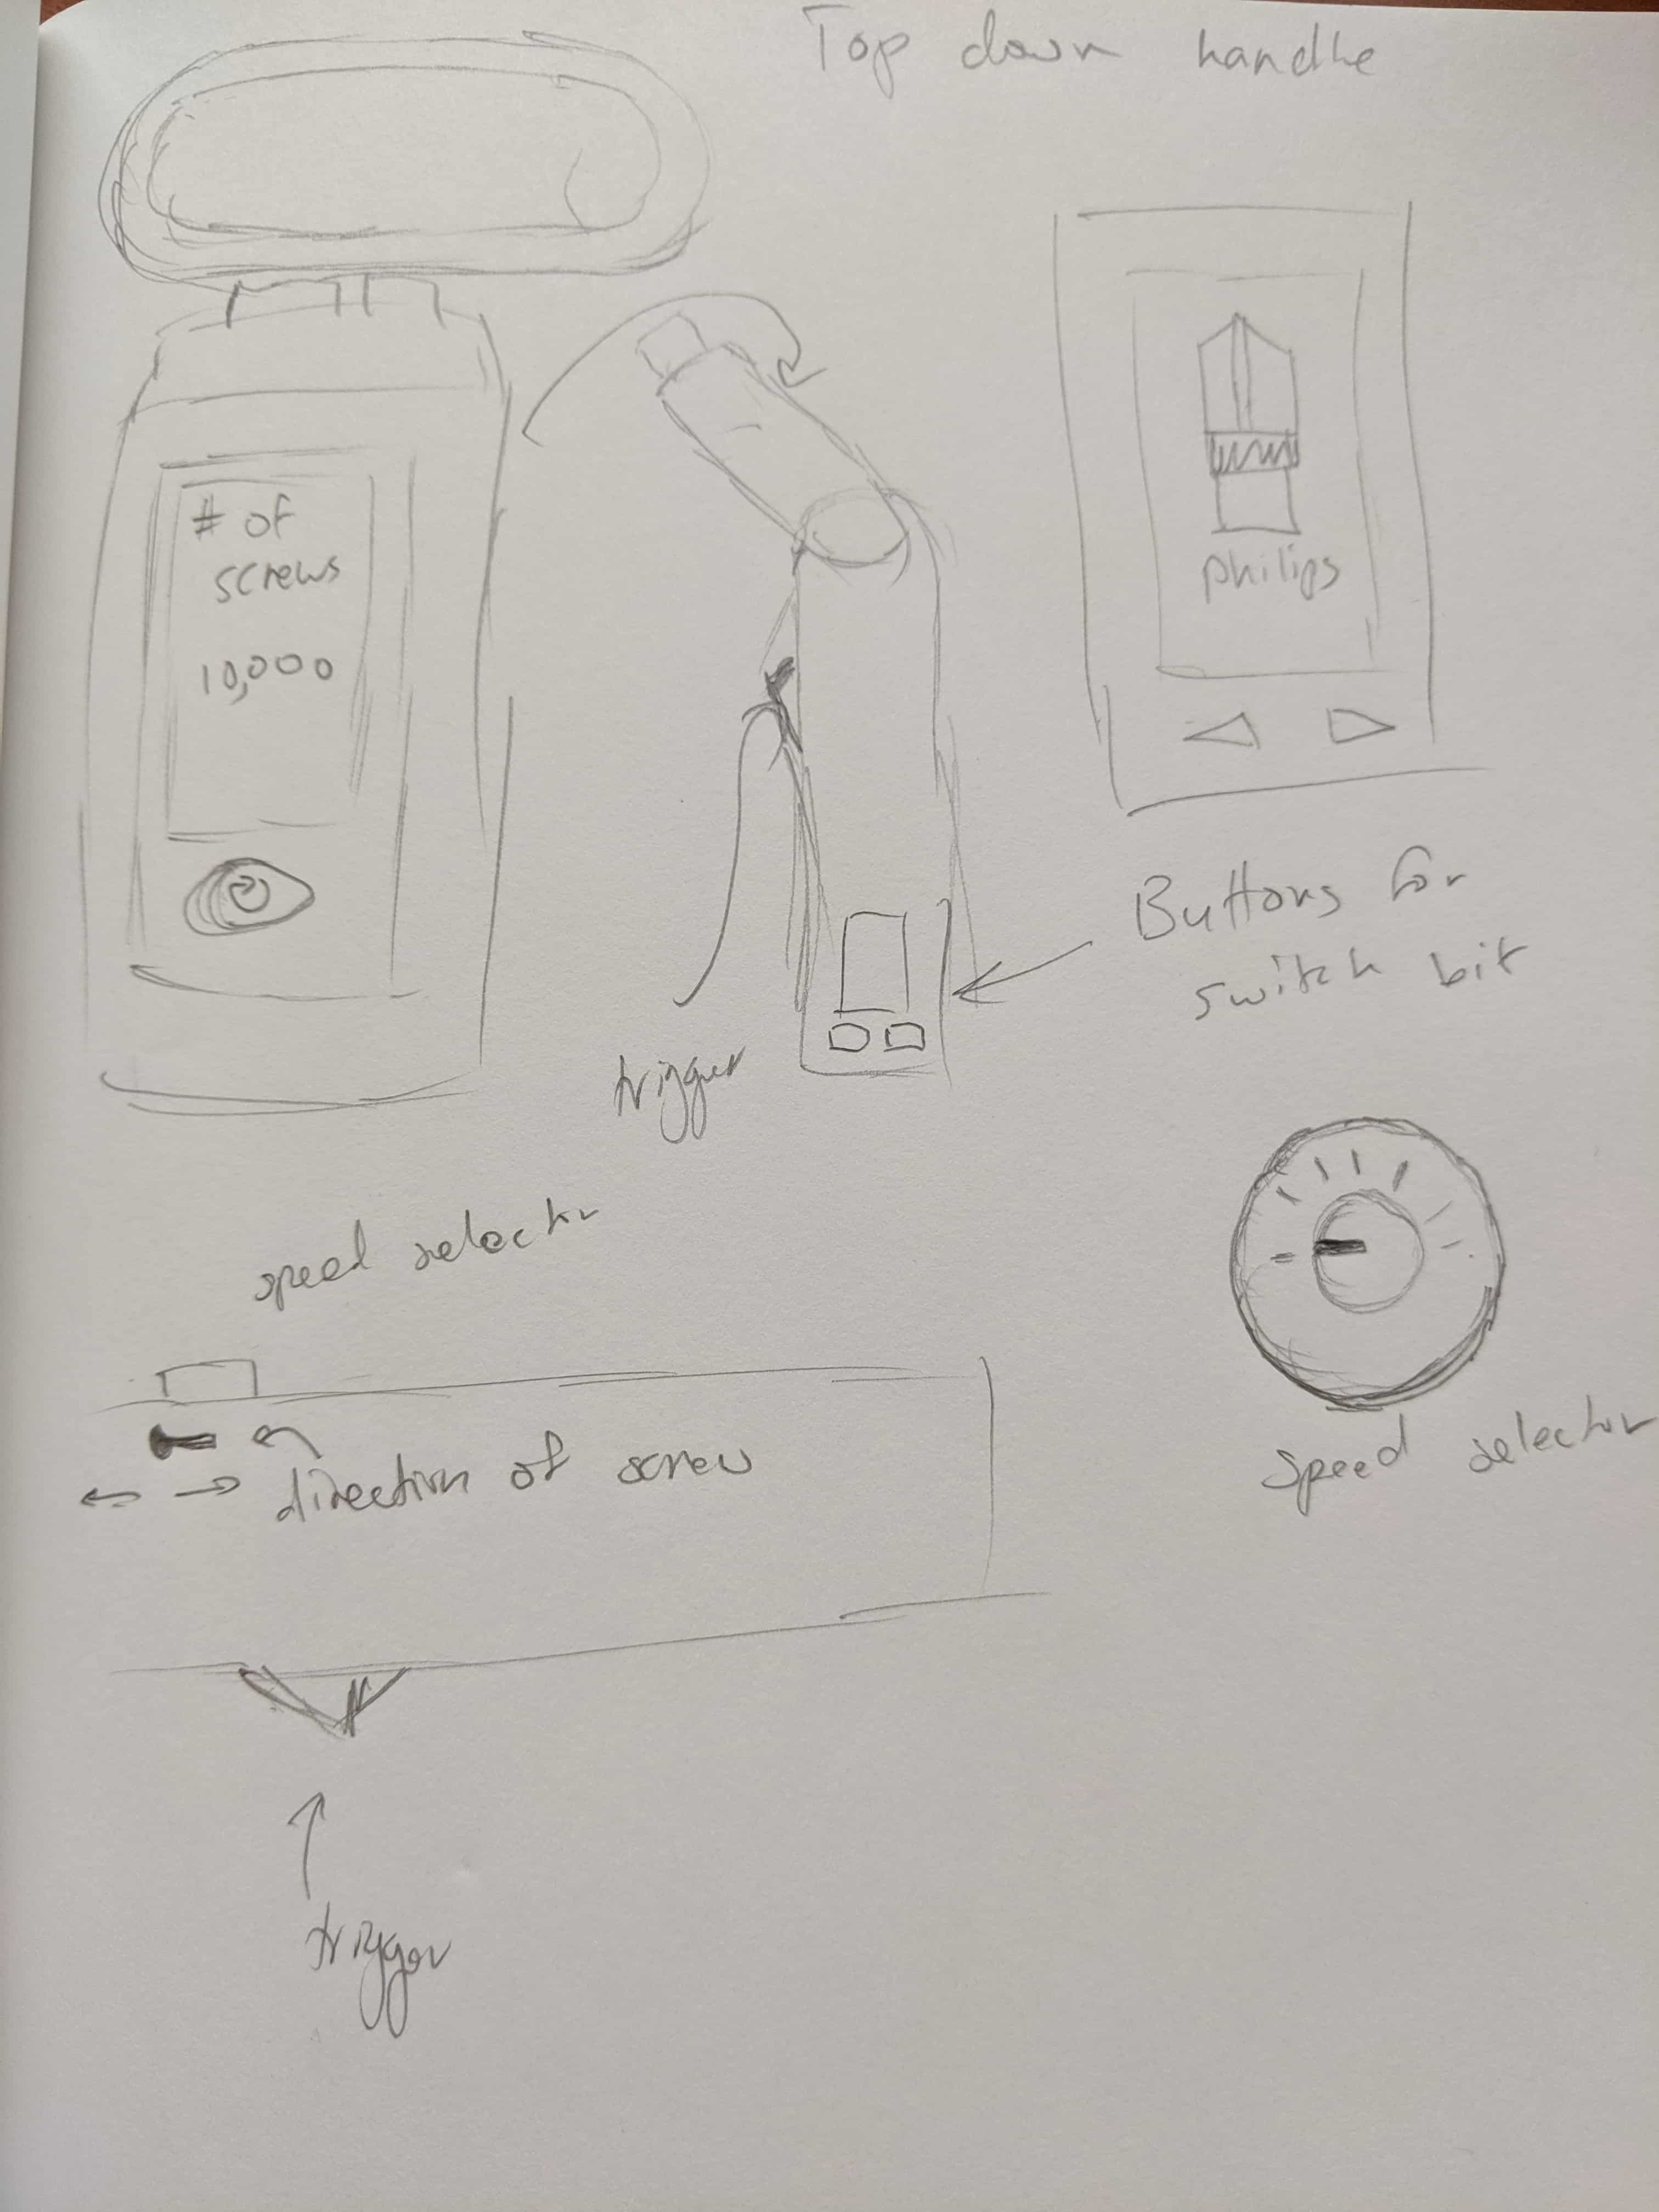 Top down handle
# of
screws
10,000
philips
Buttons for
switch bit
trigger
speed selector
speed selector
direction of screw
trigger